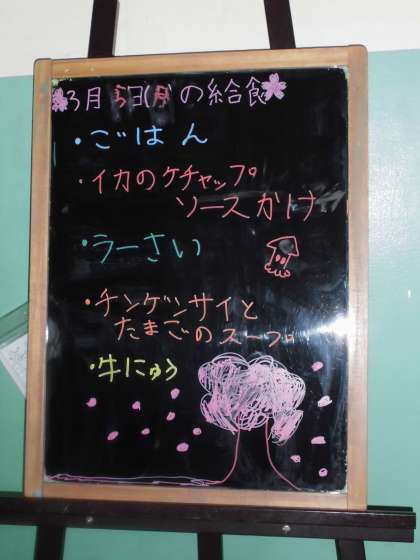 3月5日(月)の給食
・ごはん
・イカのケチャップ
ソースかけ
・ラーさい
・チンゲンサイと
たまごのスープ
・牛にゅう